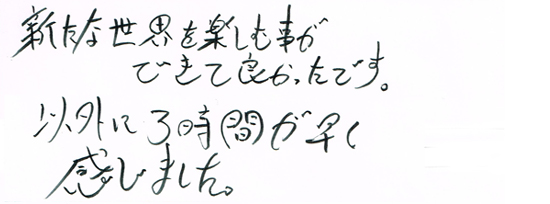 新たな世界を楽しむ事が
できて良かったです。
以外に3時間が早く
感じました。